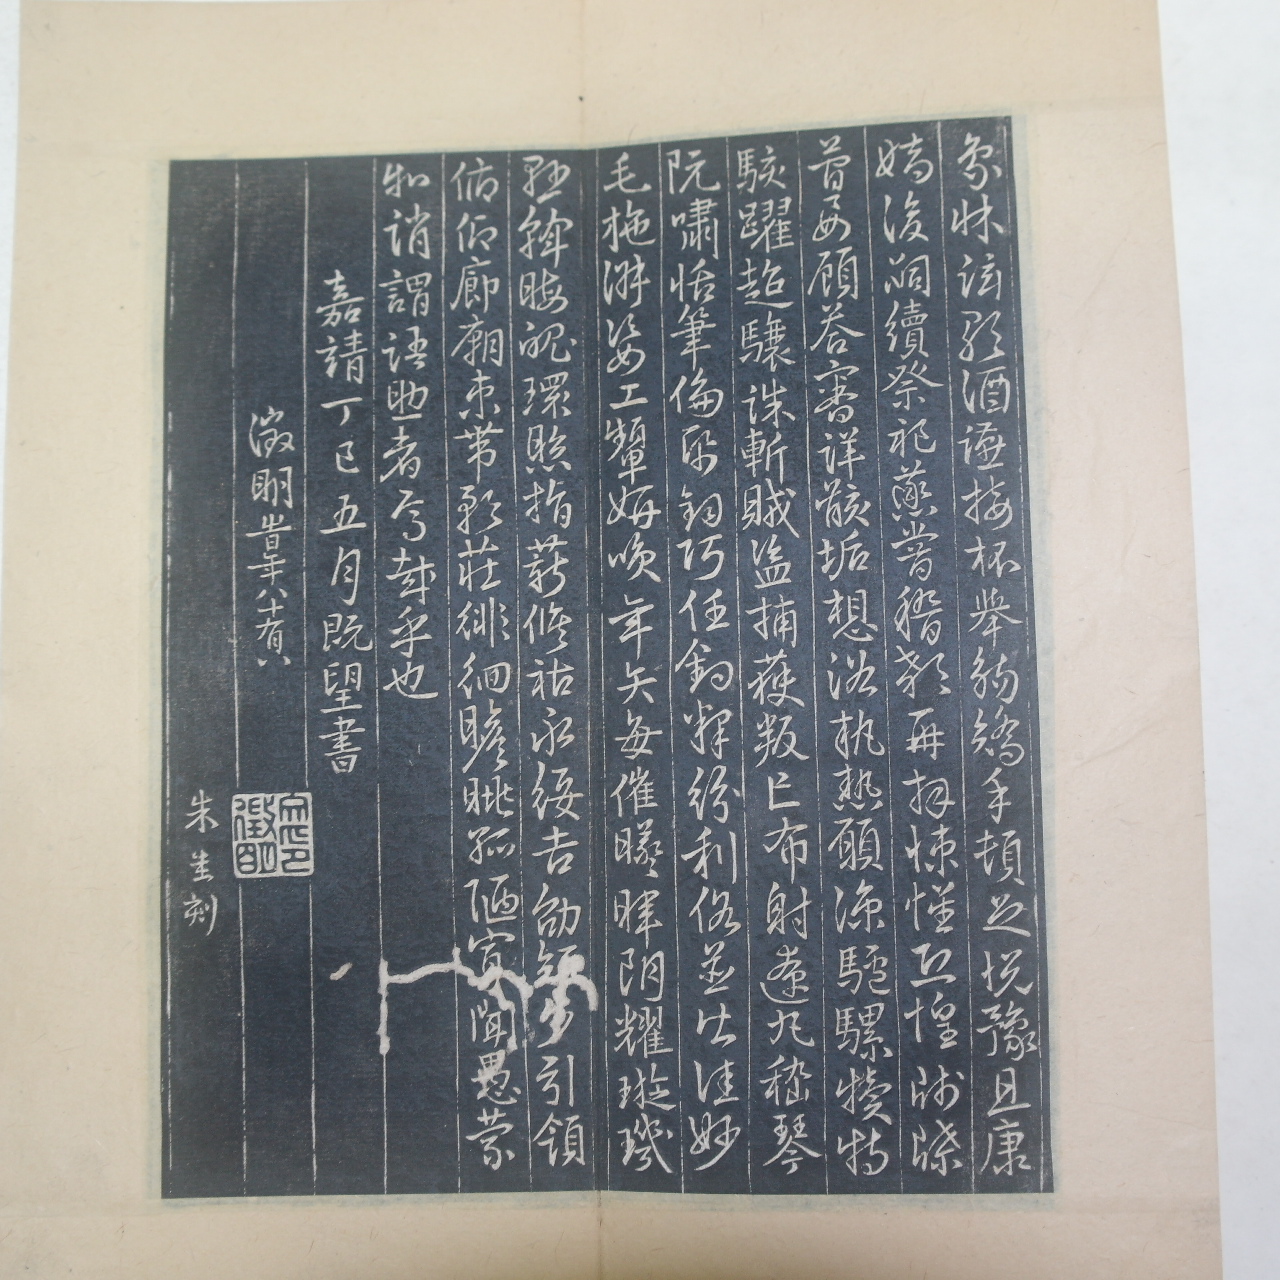 象牀弦歌酒讌接杯舉觴矯手頓足悅豫且康
嫡後嗣續祭祀蒸嘗稽顙再拜悚懼恐惶牋牒
簡要顧答審詳骸垢想浴執熱願涼驢騾犢特
駭躍超驤誅斬賊盜捕獲叛亡布射遼丸嵇琴
阮嘯恬筆倫紙鈞巧任釣釋紛利俗並皆佳妙
毛施淑姿工顰妍咲年矢每催曦暉朗耀璇璣
懸斡晦魄環照指薪脩祜永綏吉劭矩步引領
俯仰廊廟束帶矜莊徘徊瞻眺孤陋寡聞愚蒙
等誚謂語助者焉哉乎也
嘉靖丁巳五月既望書
徵明時年八十有八
文徵明印
朱圭刻